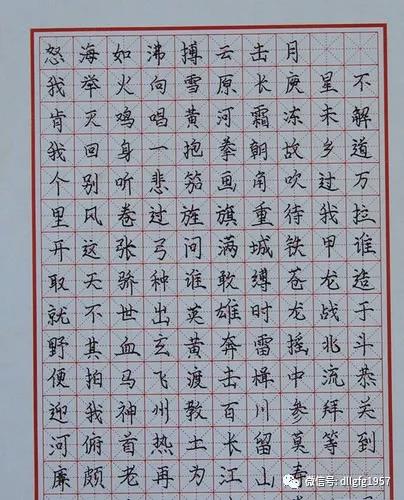 怒海如沸搏云击月
我举火向雪原长庚星不
肯灭鸡唱黄河霜冻未解
我回身一抱拳朝故乡道
个别听悲笳画角吹过万
里风卷过旌旗重待我拉
开这张弓问满城铁甲谁
取天骄种谁敢缚苍龙造
就不世出英雄时龙战于
野其血玄黄奔雷摇北斗
便拍马飞渡击楫中流恭
迎我神州教百川参拜关
河俯首热土长留莫等到
廉颇老再为江山
微信号: dllgfg1957